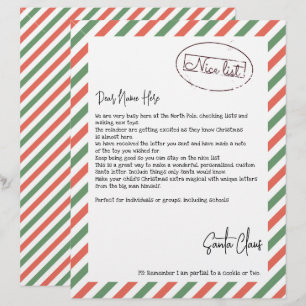 Nice list
Dear Name Here
We are very busy here at the North Pole, checking lists and
making new toys.
The reindeer are getting excited as they know Christmas
is almost here.
We have received the letter you sent and have made a note
of the toy you wished for
Keep being good so you can stay on the nice list
This is a great way to make a wonderful, personalized, custom
Santa letter. Include things only Santa would know.
Make your child's Christmas extra magical with unique letters
from the big man himself.
Perfect for individuals or groups, including schools
Santa Claus
PS: Remember I am partial to a cookie or two.